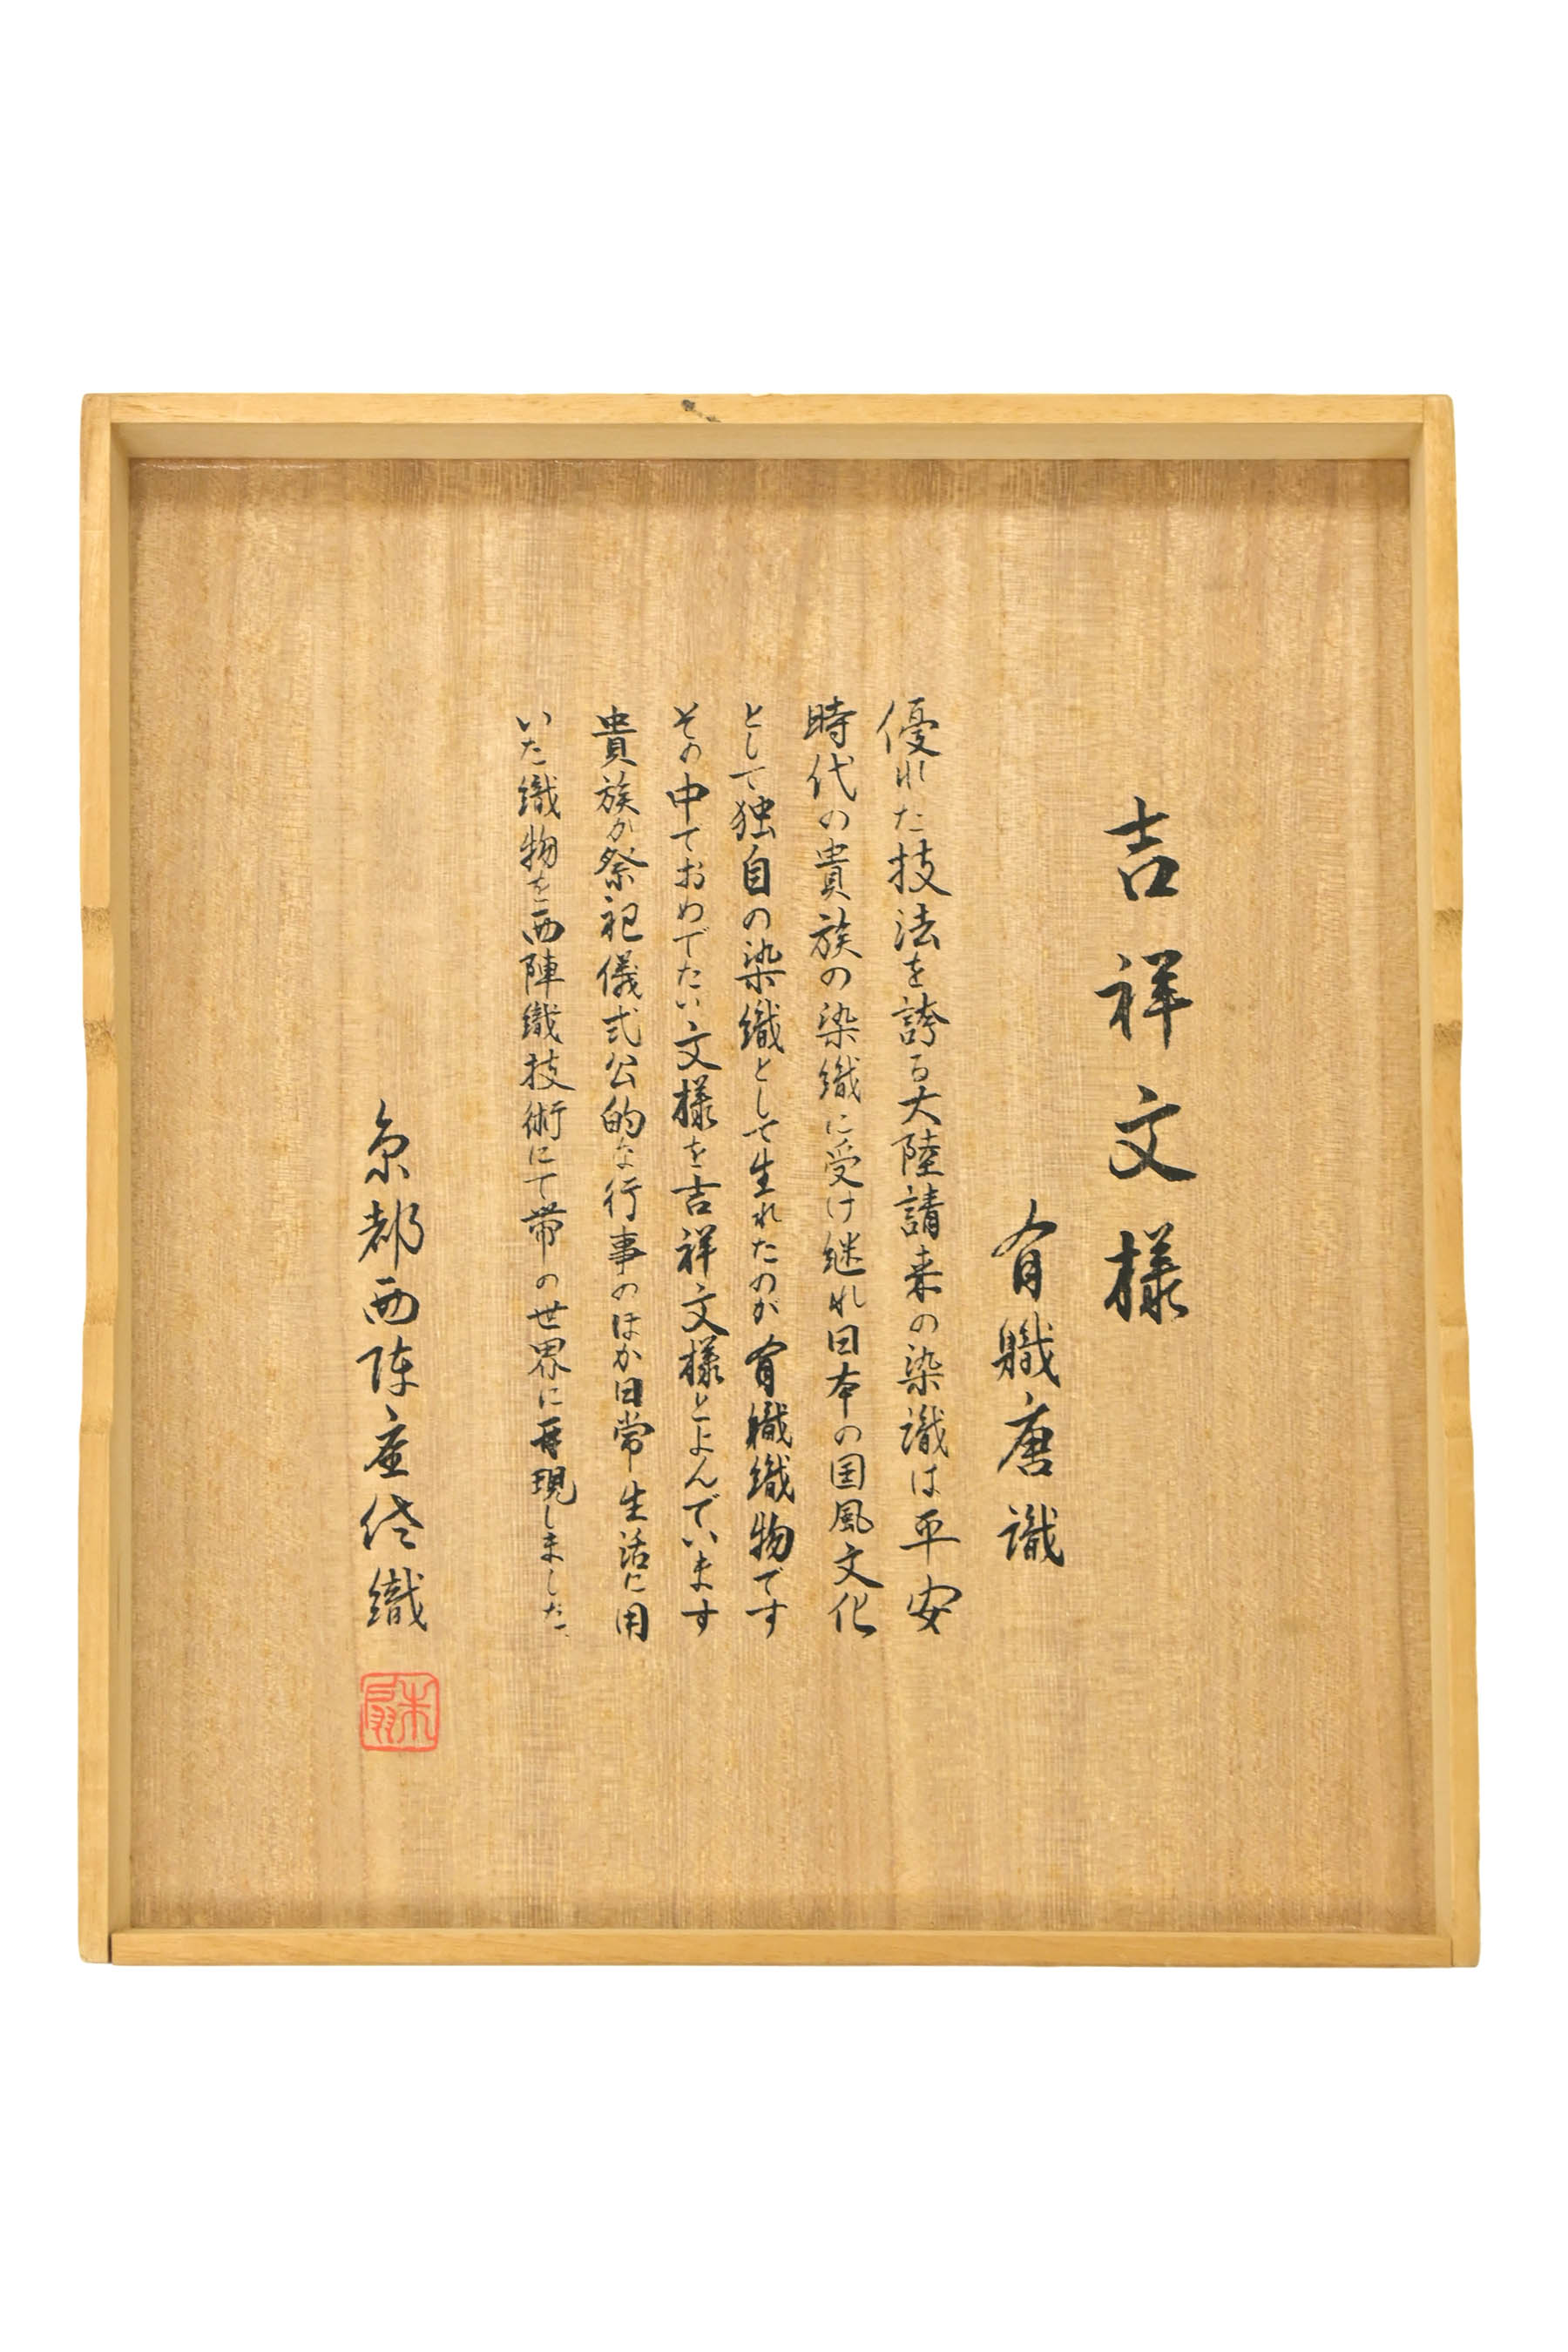 吉祥文様
有職唐識
優れた技法を誇る大陸請来の染識は平安
時代の貴族の染織に受け継れ日本の国風文化
として独自の染織として生れたのが有職織物です
その中ておめでたい文様を吉祥文様とよんでいます
貴族が祭祀儀式公的な行事のほか日常生活に用
いた織物を西陣織技術にて帯の世界に再現しました
京都西陣座織